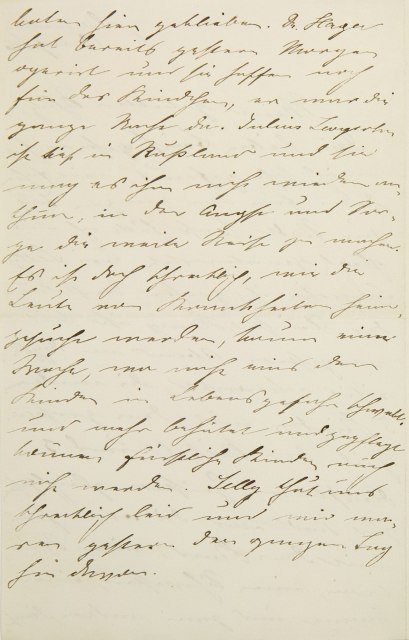 hier geblieben. Dr. Hager
hat bereits gestern Morgen
operirt und sie hoffen noch
für das Kindchen, er war die
ganze Nacht da. Julius
ist tief in Rußland und sie
mag es ihm nicht wieder an-
thun, in der Angst und Sor-
ge die weite Reise zu machen.
Es ist doch schrecklich, wie die
Leute von Krankheiten heim-
gesucht werden, kaum eine
Woche, wo nicht eins der
Kinder in Lebensgefahr schwebt,
und mehr behütet und gepflegt
können fürstliche Kinder auch
nicht werden. Selly thut uns
schrecklich leid und wir wa-
ren gestern den ganzen Tag
hin